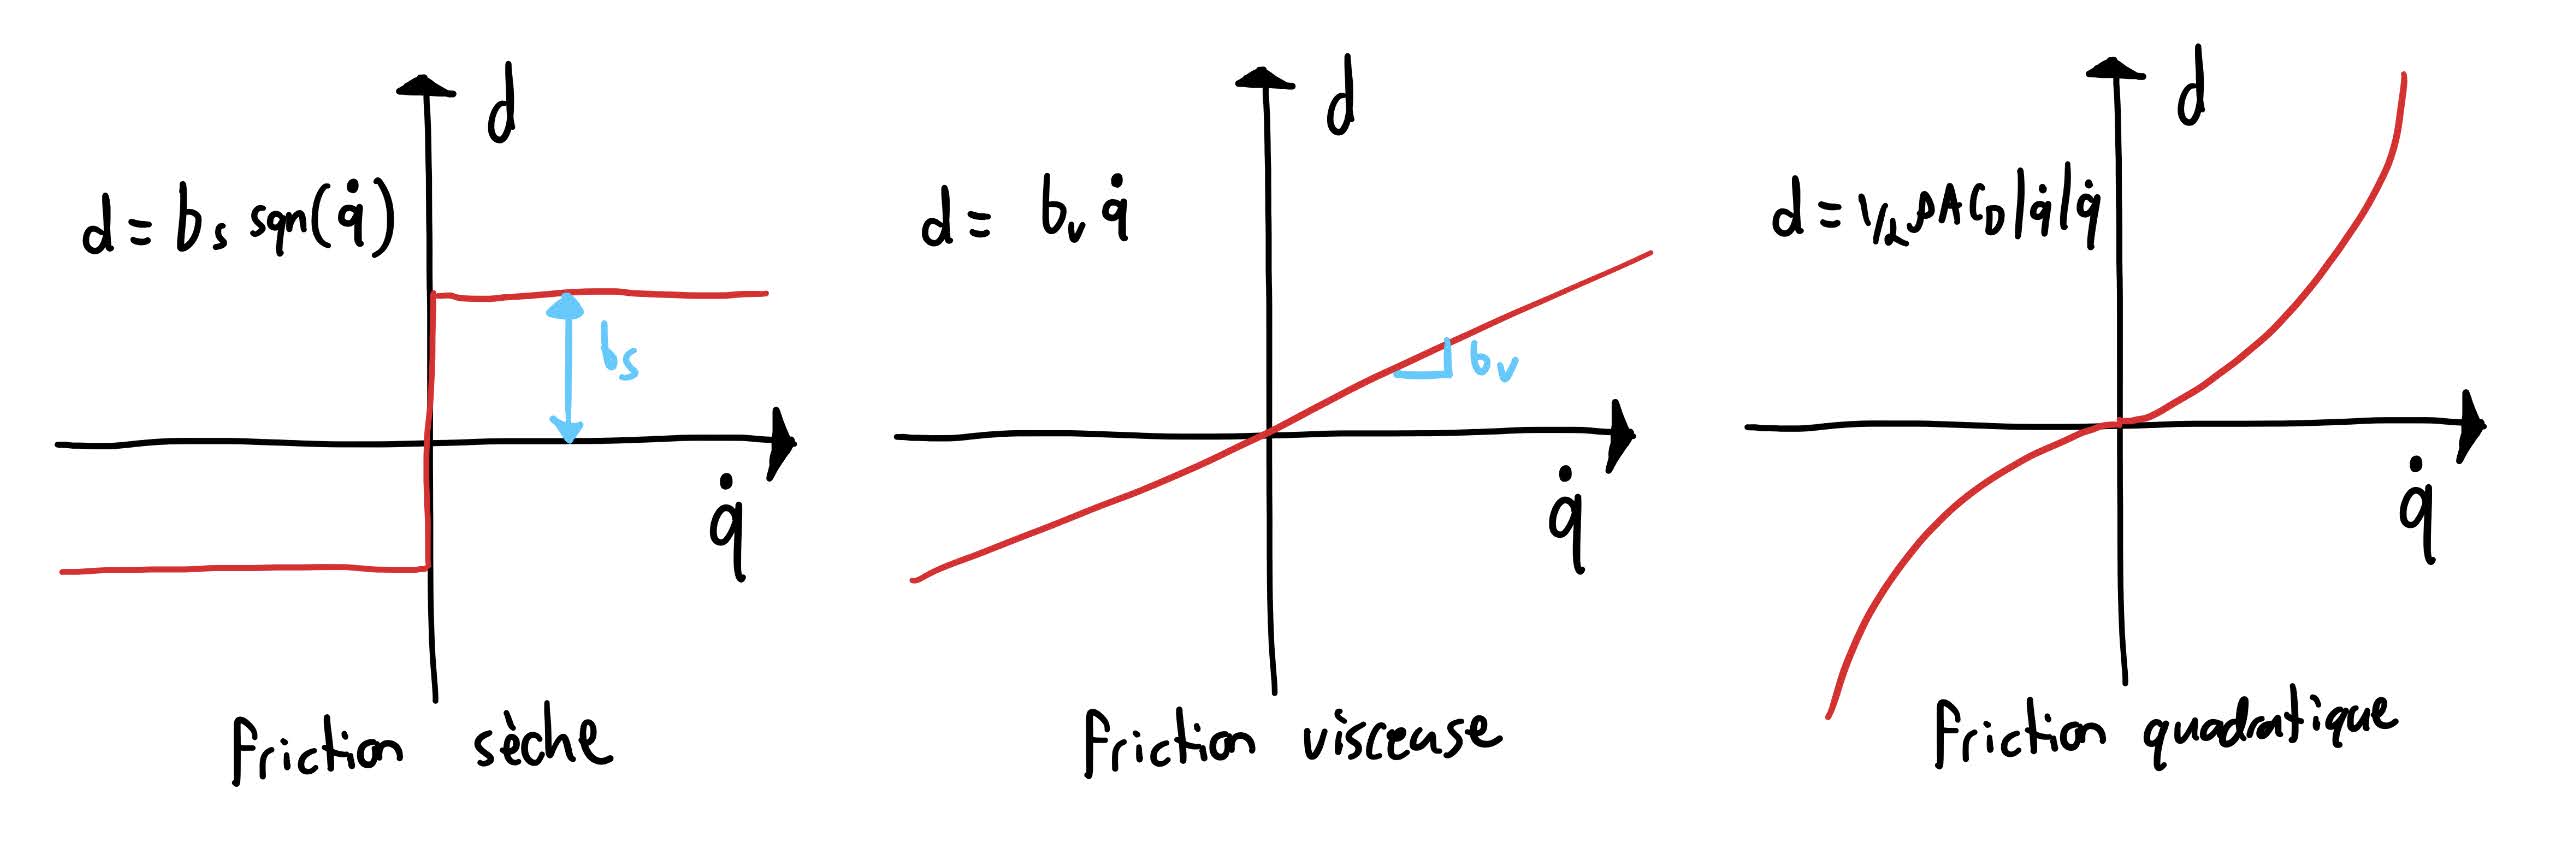 d
d = bs sgn(q̇)
bs
q̇
friction sèche
d
d = bv q̇
bv
q̇
friction visceuse
d
d = 1/2 ρ A CD |q̇| q̇
q̇
friction quadratique